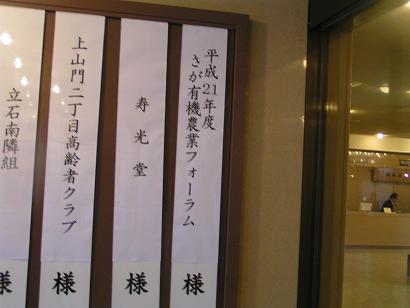 平成21年度
さが有機農業フォーラム
様
寿光堂
様
上山門二丁目高齢者クラブ
様
立石南隣組
様